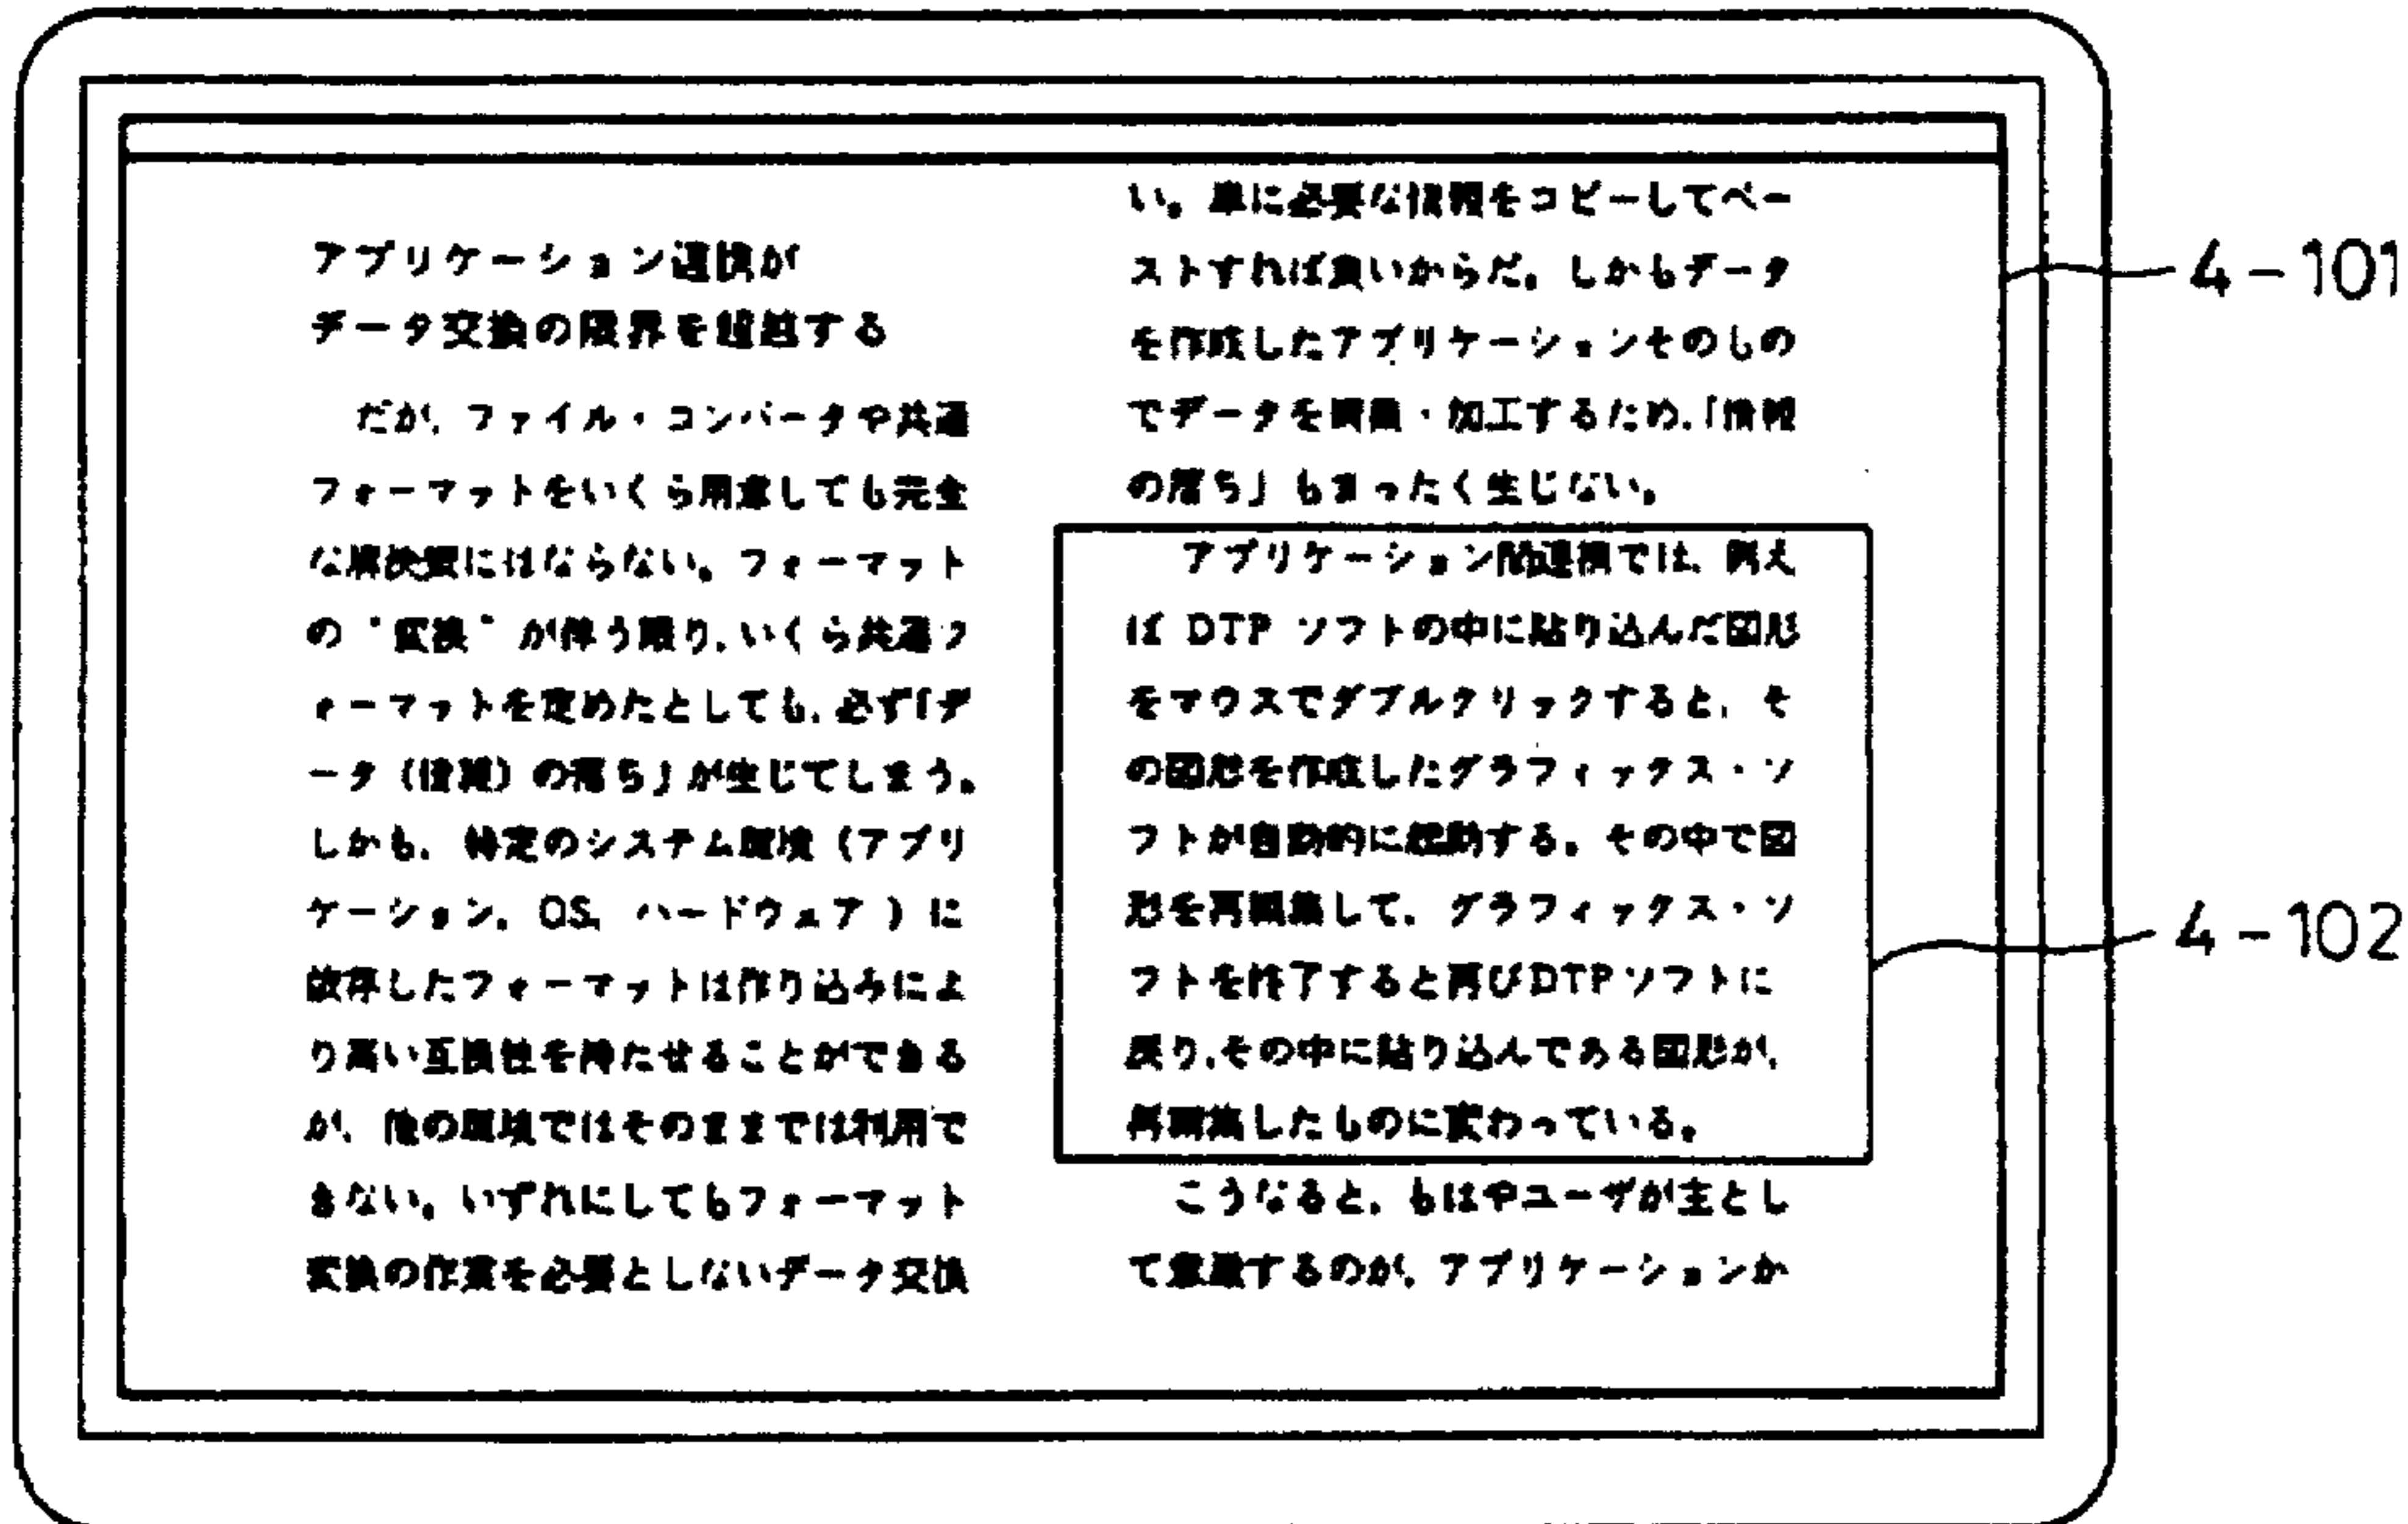 アプリケーション連携が
データ交換の限界を超越する
だが, ファイル・コンバータや共通
フォーマットをいくら用意しても完全
な解決策にはならない。フォーマット
の“変換”が伴う限り, いくら共通フ
ォーマットを定めたとしても, 必ず「デ
ータ（情報）の落ち」が生じてしまう。
しかも, 特定のシステム環境（アプリ
ケーション, OS, ハードウェア）に
依存したフォーマットは作り込みによ
り高い互換性を持たせることができる
が, 他の環境ではそのままでは利用で
きない。いずれにしてもフォーマット
変換の作業を必要としないデータ交換
い。単に必要な情報をコピーしてペー
ストすれば良いからだ。しかもデータ
を作成したアプリケーションそのもの
でデータを編集・加工するため,「情報
の落ち」もまったく生じない。
アプリケーション間連携では, 例え
ば DTP ソフトの中に貼り込んだ図形
をマウスでダブルクリックすると, そ
の図形を作成したグラフィックス・ソ
フトが自動的に起動する。その中で図
形を再編集して, グラフィックス・ソ
フトを終了すると再びDTPソフトに
戻り,その中に貼り込んである図形が,
再編集したものに変わっている。
こうなると, もはやユーザが主とし
て意識するのが, アプリケーションか
4-101
4-102